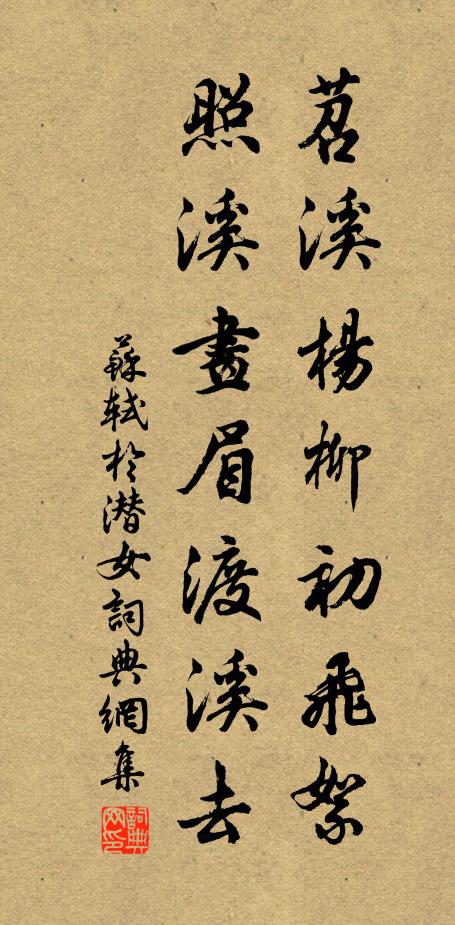 苕溪楊柳初飛絮
照溪畫眉渡溪去
蘇軾於潛女詞典網集
詞典網印